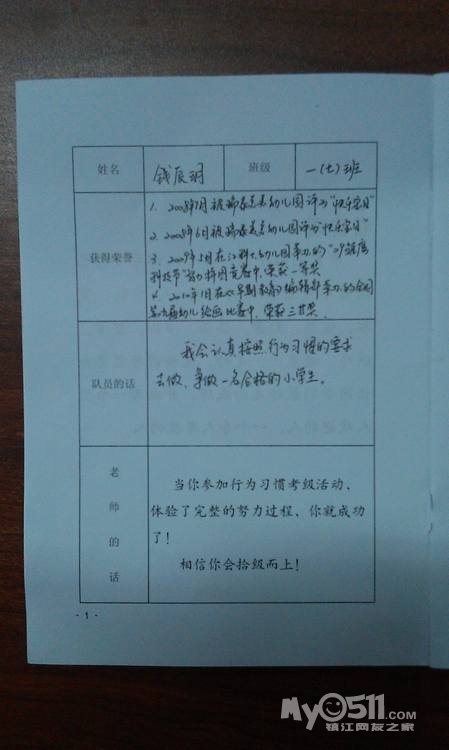 姓名 钱辰玥 班级 一(七)班
获得荣誉
1、2008年1月被瑞康艺美幼儿园评为“快乐宝贝”
2、2008年6月被瑞康艺美幼儿园评为“快乐宝贝”
3、2009年5月在江科大幼儿园举办的“
科技节” 拼图竞赛中,荣获一等奖
4、2010年1月在《早期教育》编辑部举办的全国
第九届幼儿绘画比赛中,荣获三等奖
队员的话
我会认真按照行为习惯的要求
去做,争做一名合格的小学生。
老师的话
当你参加行为习惯考级活动、
体验了完整的努力过程,你就成功
了!
相信你会拾级而上!
- 1 -
My0511.com
镇江网友之家